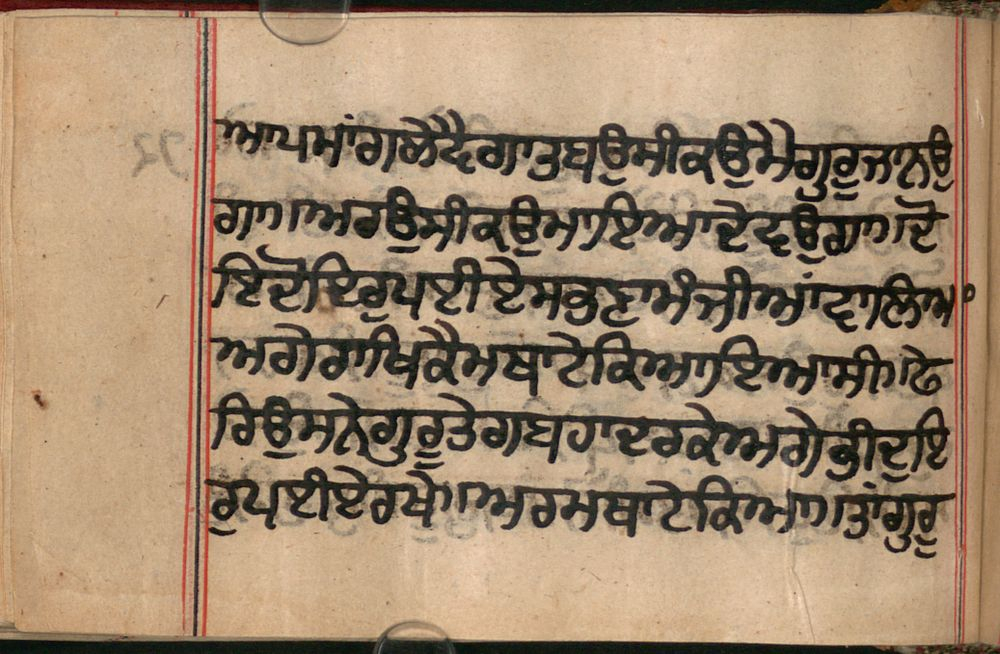 ਆਪਮਾਂਗਲੇਵੈਗਾਤਬਉਸੀਕਉਮੈਗੁਰੂਜਾਨਉ
ਗਾ॥ਅਰਉਸੀਕਉਮਾਇਆਦੇਵਉਗਾ॥ਦੋ
ਇਦੋਇਰੁਪਈਏਸਭਣਾਮੰਜੀਆਂਵਾਲਿਆ
ਅਗੇਰਾਖਿਕੈਮਥਾਟੇਕਿਆ॥ਇਆਸੀ॥ਫੇ
ਰਿਉਸਨੇਗੁਰੂਤੇਗਬਹਾਦਰਕੇਅਗੇਭੀਦੁਇ
ਰੁਪਈਏਰਖੇ॥ਅਰਮਥਾਟੇਕਿਆ॥ਤਾਂਗੁਰੂ